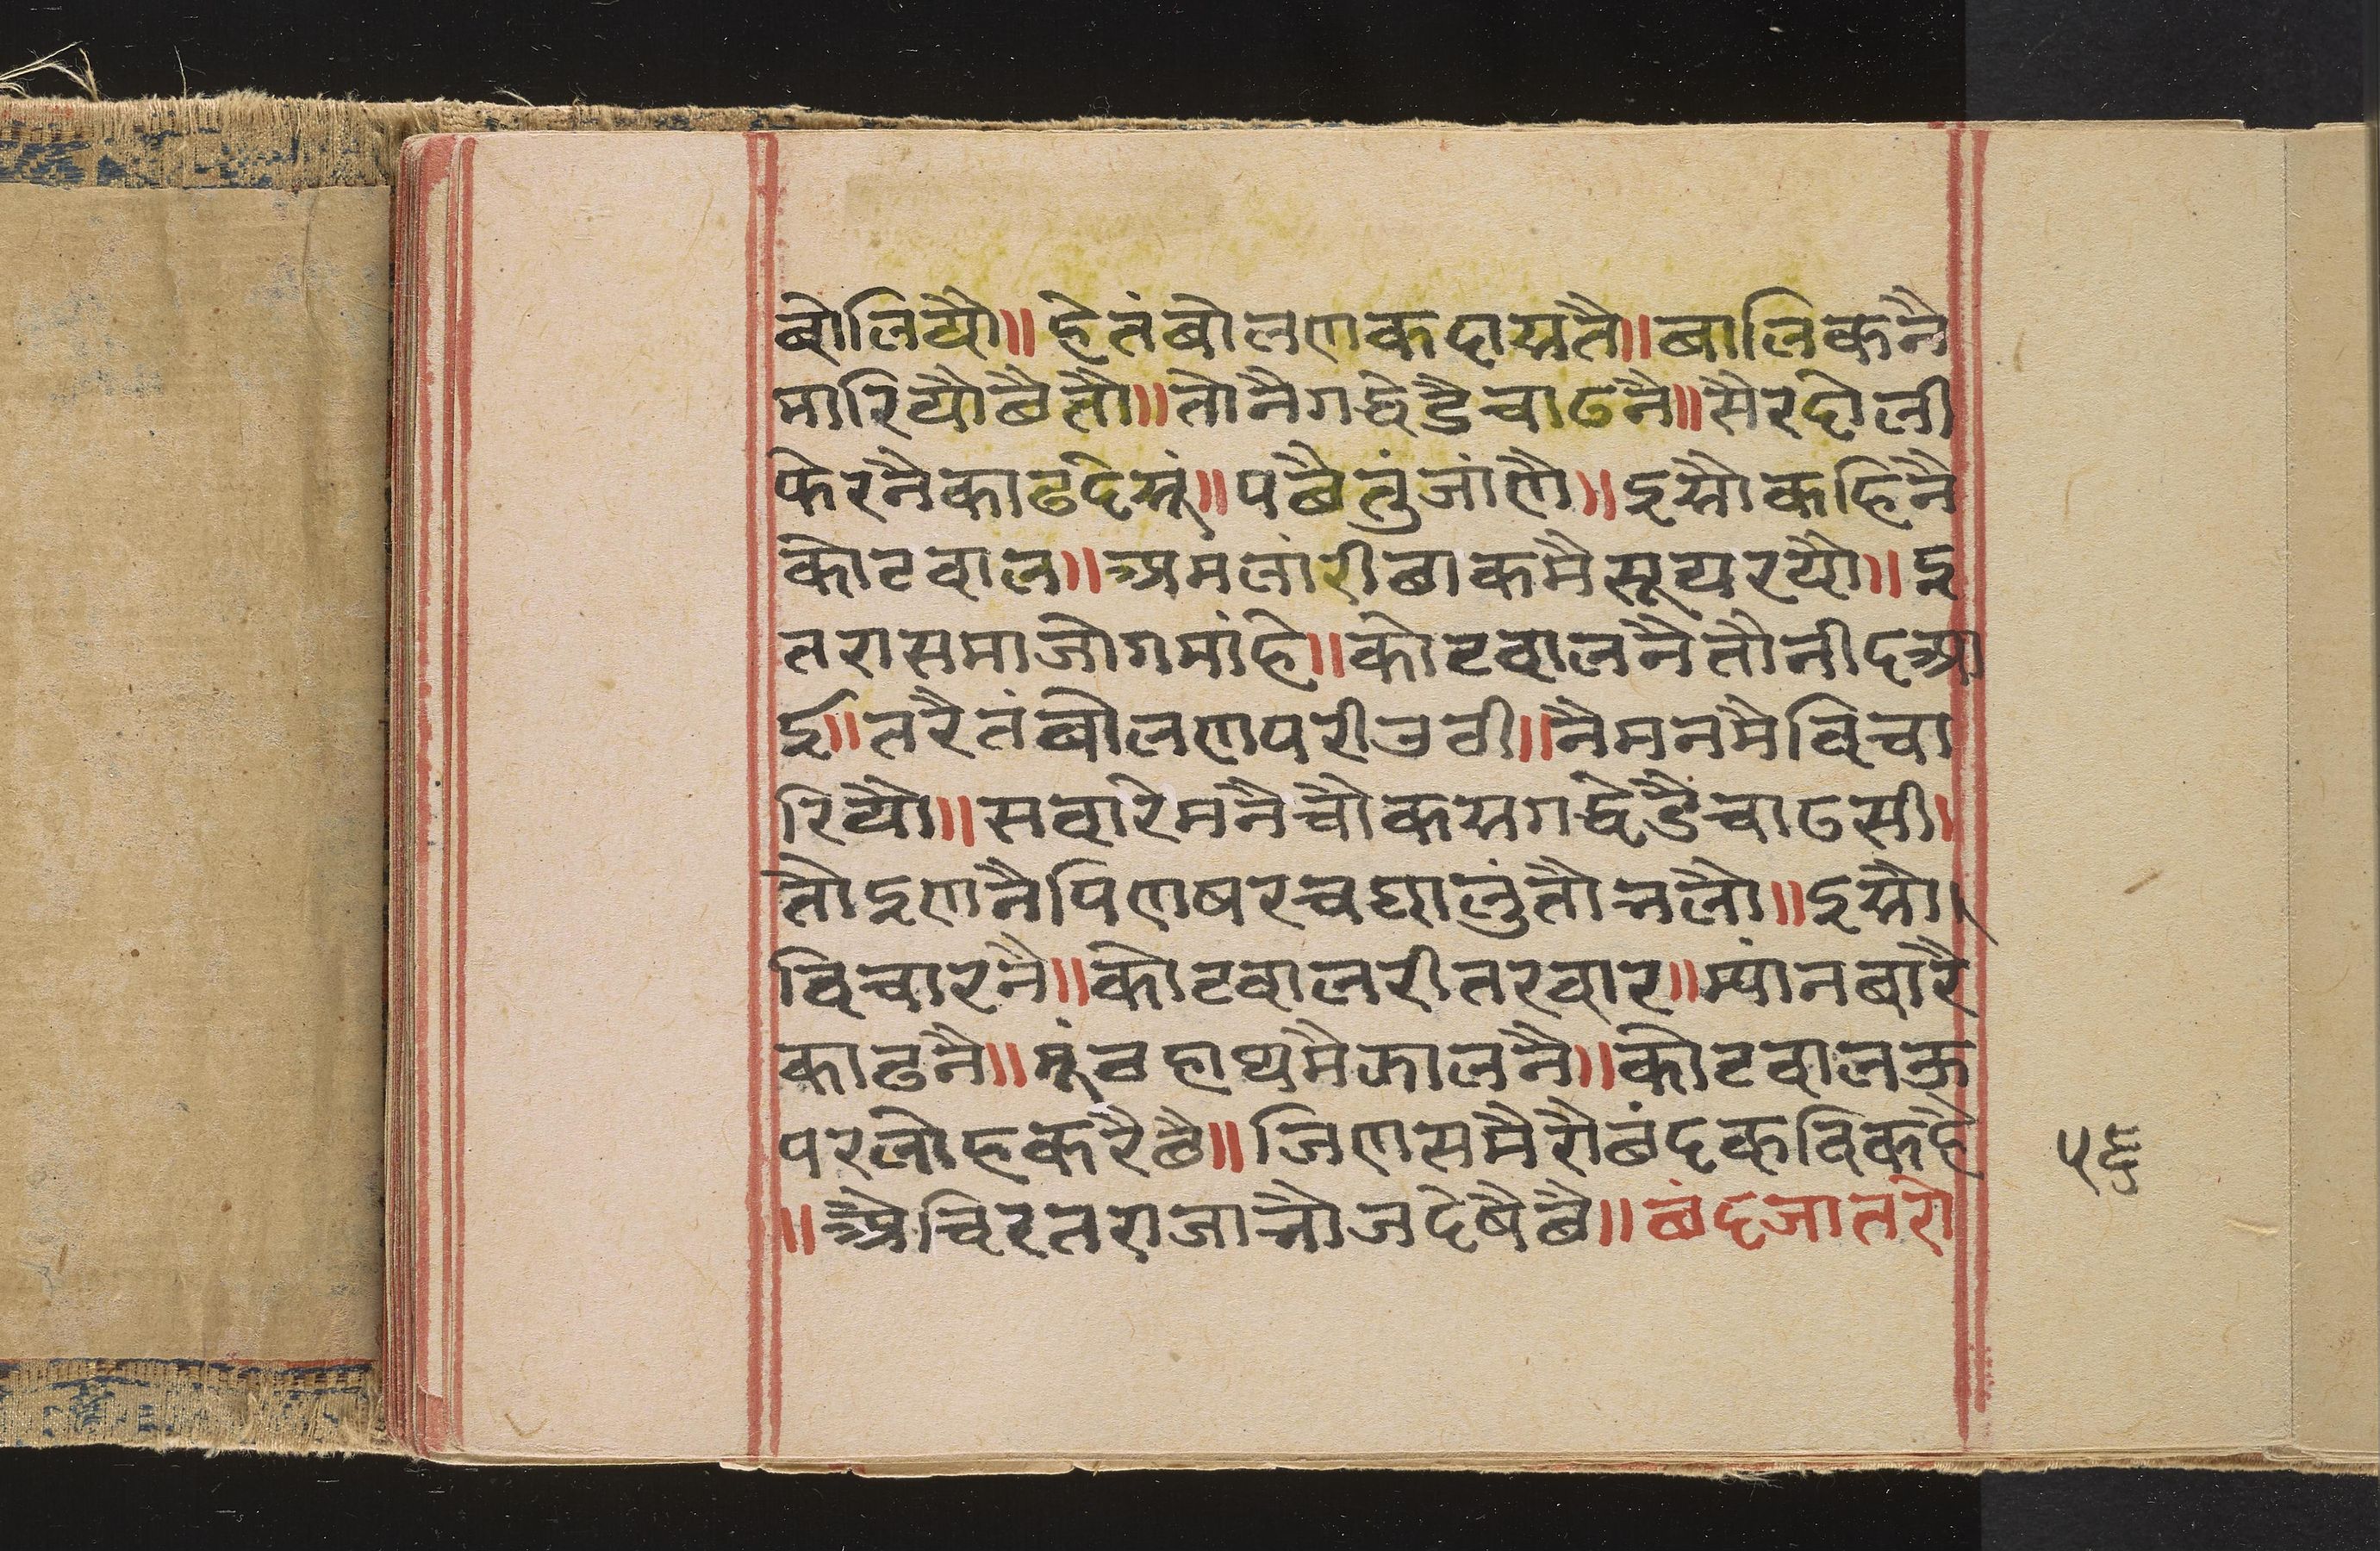 बोलियौ॥ हे तंबोलण कदास्रतै॥ बालिकनै
मारियौ बै तौ॥ तो नै गद्धेडै चाढनै॥ सैरदोली
फेरनै काढदेस्रूं॥ पछै तुं जांणै॥ इस्रौ कहिनै
कोटवाल॥ अमलांरी छाकमै सूय रयौ॥ इ
तरा समाजोगमांहे॥ कोटवालनै तौ नीद आ
ई॥ तरै तंबोलण परी उठी॥ नै मनमै विचा
रियौ॥ सवारे मनै चौकस्र गद्धेडै चाढसी॥
तौ इणनै पिण षरच घालुं तौ भलौ॥ इस्रौ।
विचारनै॥ कोटवालरी तरवार॥ म्यांन बारै
काढनै॥ मूंठ हाथमै झालनै॥ कोटवाल ऊ
पर लोह करै छै॥ जिण समैरौ छंद कवि कहै
॥ औ चिरत राजा भोज देषै छै॥ छंद जातरो
५६